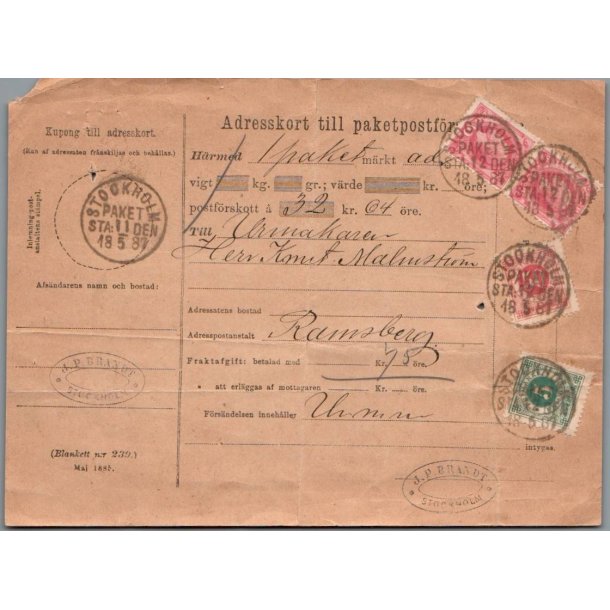 Kupong till adresskort.
(Kan af adressaten frånskiljas och behållas.)
Inlemning-post-
anstaltens stämpel.
STOCKHOLM
PAKET
STA: 11 DEN
18 5 87
Afsändarens namn och bostad:
J. P. BRANDT
STOCKHOLM
(Blankett n:r 239.)
Maj 1885.
Adresskort till paketpostför
Härmed 1 paket märkt ad
vigt kg. gr.; värde kr. öre;
postförskott à 32 kr. 64 öre.
Till Urmakaren
Herr Knut Malmström
Adressatens bostad
Adresspostanstalt Ramsberg.
Fraktafgift: betalad med Kr. 75 öre.
" att erläggas af mottagaren Kr. öre.
Försändelsen innehåller
intygas.
J. P. BRANDT
STOCKHOLM
STOCKHOLM
PAKET
STA: 12 DEN
18 5 87
STOCKHOLM
PAKET
STA: 12 DEN
18 5 87
STOCKHOLM
PAKET
STA: 12 DEN
18 5 87
STOCKHOLM
18 5 87